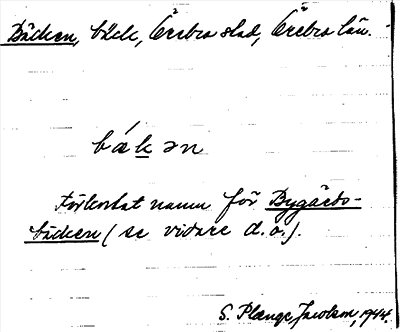 Bäcken, bäck, Örebro stad, Örebro län.
bǽkən
Förkortat namn för Bygärds-
bäcken (se vidare d.o.).
S. Plange Jacobson, 1944.